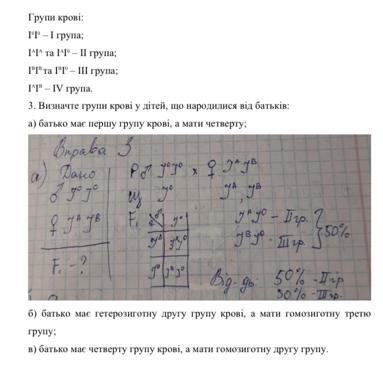 Групи крові:
I⁰I⁰ – I група;
IᴬIᴬ та IᴬI⁰ – II група;
IᴮIᴮта IᴮI⁰ – III група;
IᴬIᴮ – IV група.
3. Визначте групи крові у дітей, що народилися від батьків:
а) батько має першу групу крові, а мати четверту;
Вправа 3
а) Дано
♂ J⁰J⁰
♀ JᴬJᴮ
F₁ - ?
P ♂ J⁰J⁰ × ♀ JᴬJᴮ
J⁰ Jᴬ, Jᴮ
F₁ ♀ ♂ J⁰
Jᴬ JᴬJ⁰
Jᴮ JᴮJ⁰
JᴬJ⁰ - II гр.
JᴮJ⁰ - III гр. } 50%
Від-дь: 50% - II гр
50% - III гр.
б) батько має гетерозиготну другу групу крові, а мати гомозиготну третю
групу;
в) батько має четверту групу крові, а мати гомозиготну другу групу.